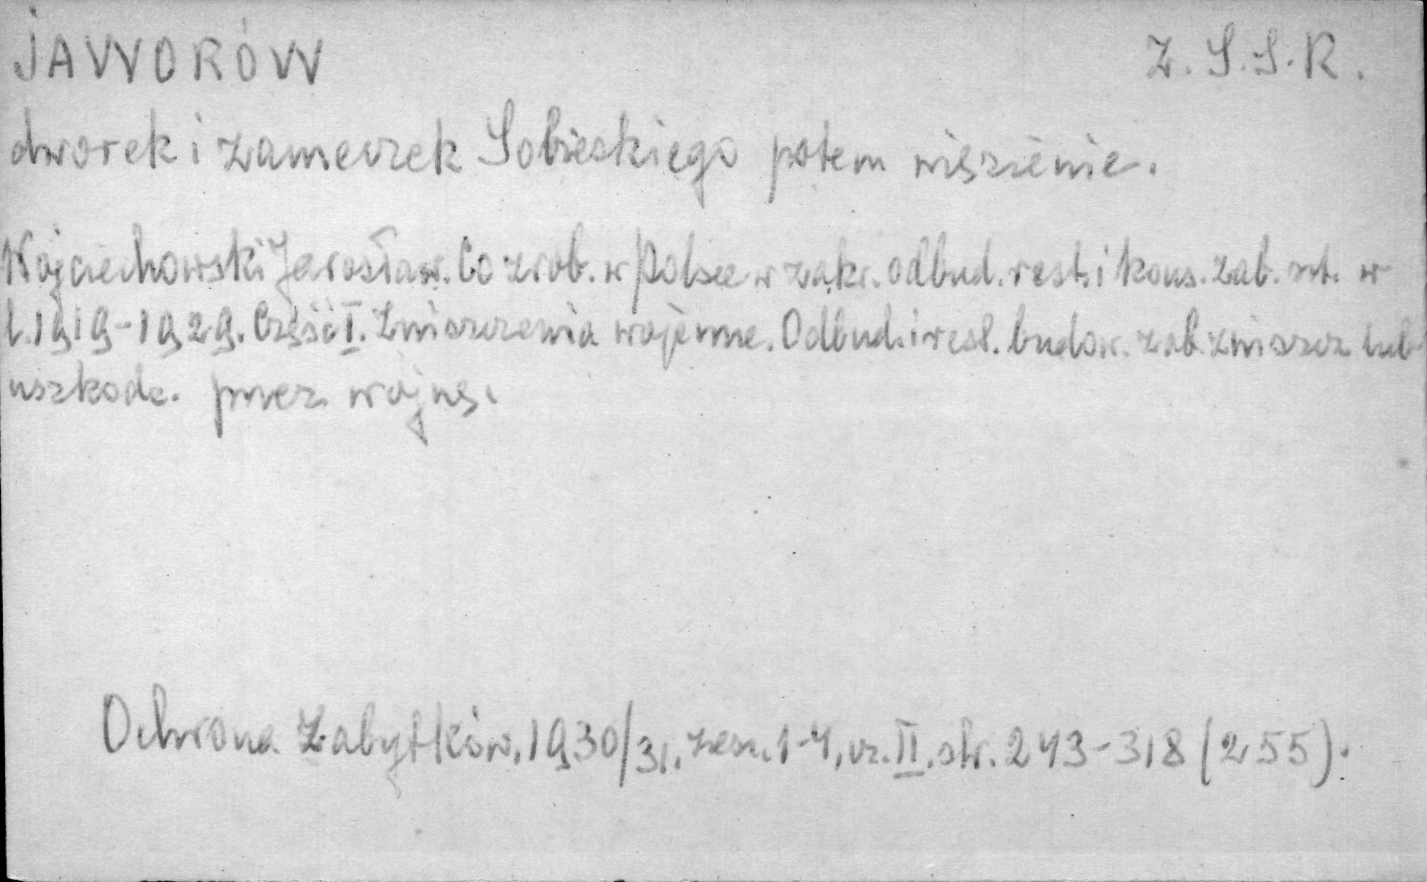 JAWORÓW Z.S.S.R.
dworek i zameczek Sobieskiego potem więzienie.
Wojciechowski Jarosław. Co zrob. w Polsce w zakr. odbud. rest. i kons. zab. szt. w
l. 1919-1929. Część I. Zniszczenia wojenne. Odbud. i rest. budow. zab. zniszcz. lub
uszkodz. przez wojnę.
Ochrona Zabytków, 1930/31, zesz. 1-4, cz. II, str. 243-318 (255).